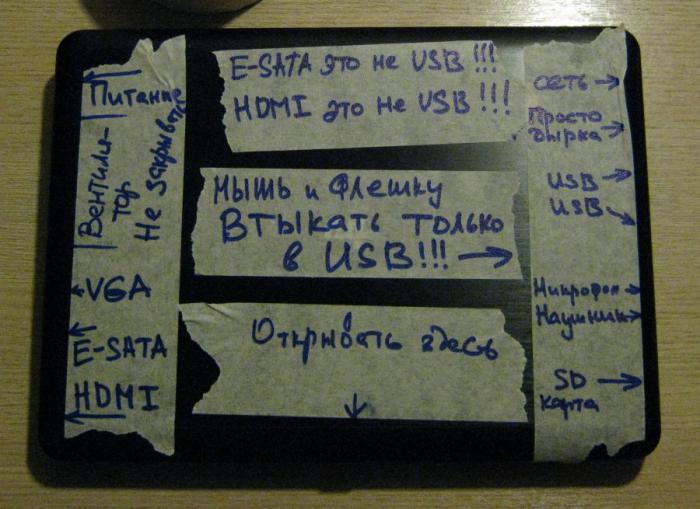 Питание
Вентиля-
тор
Не закрывать
VGA
E-SATA
HDMI
E-SATA это не USB!!!
HDMI это не USB!!!
Мышь и Флешку
Втыкать только
в USB!!!
Открывать здесь
сеть
Просто
дырка
USB
USB
Микрофон
Наушники
SD
карта